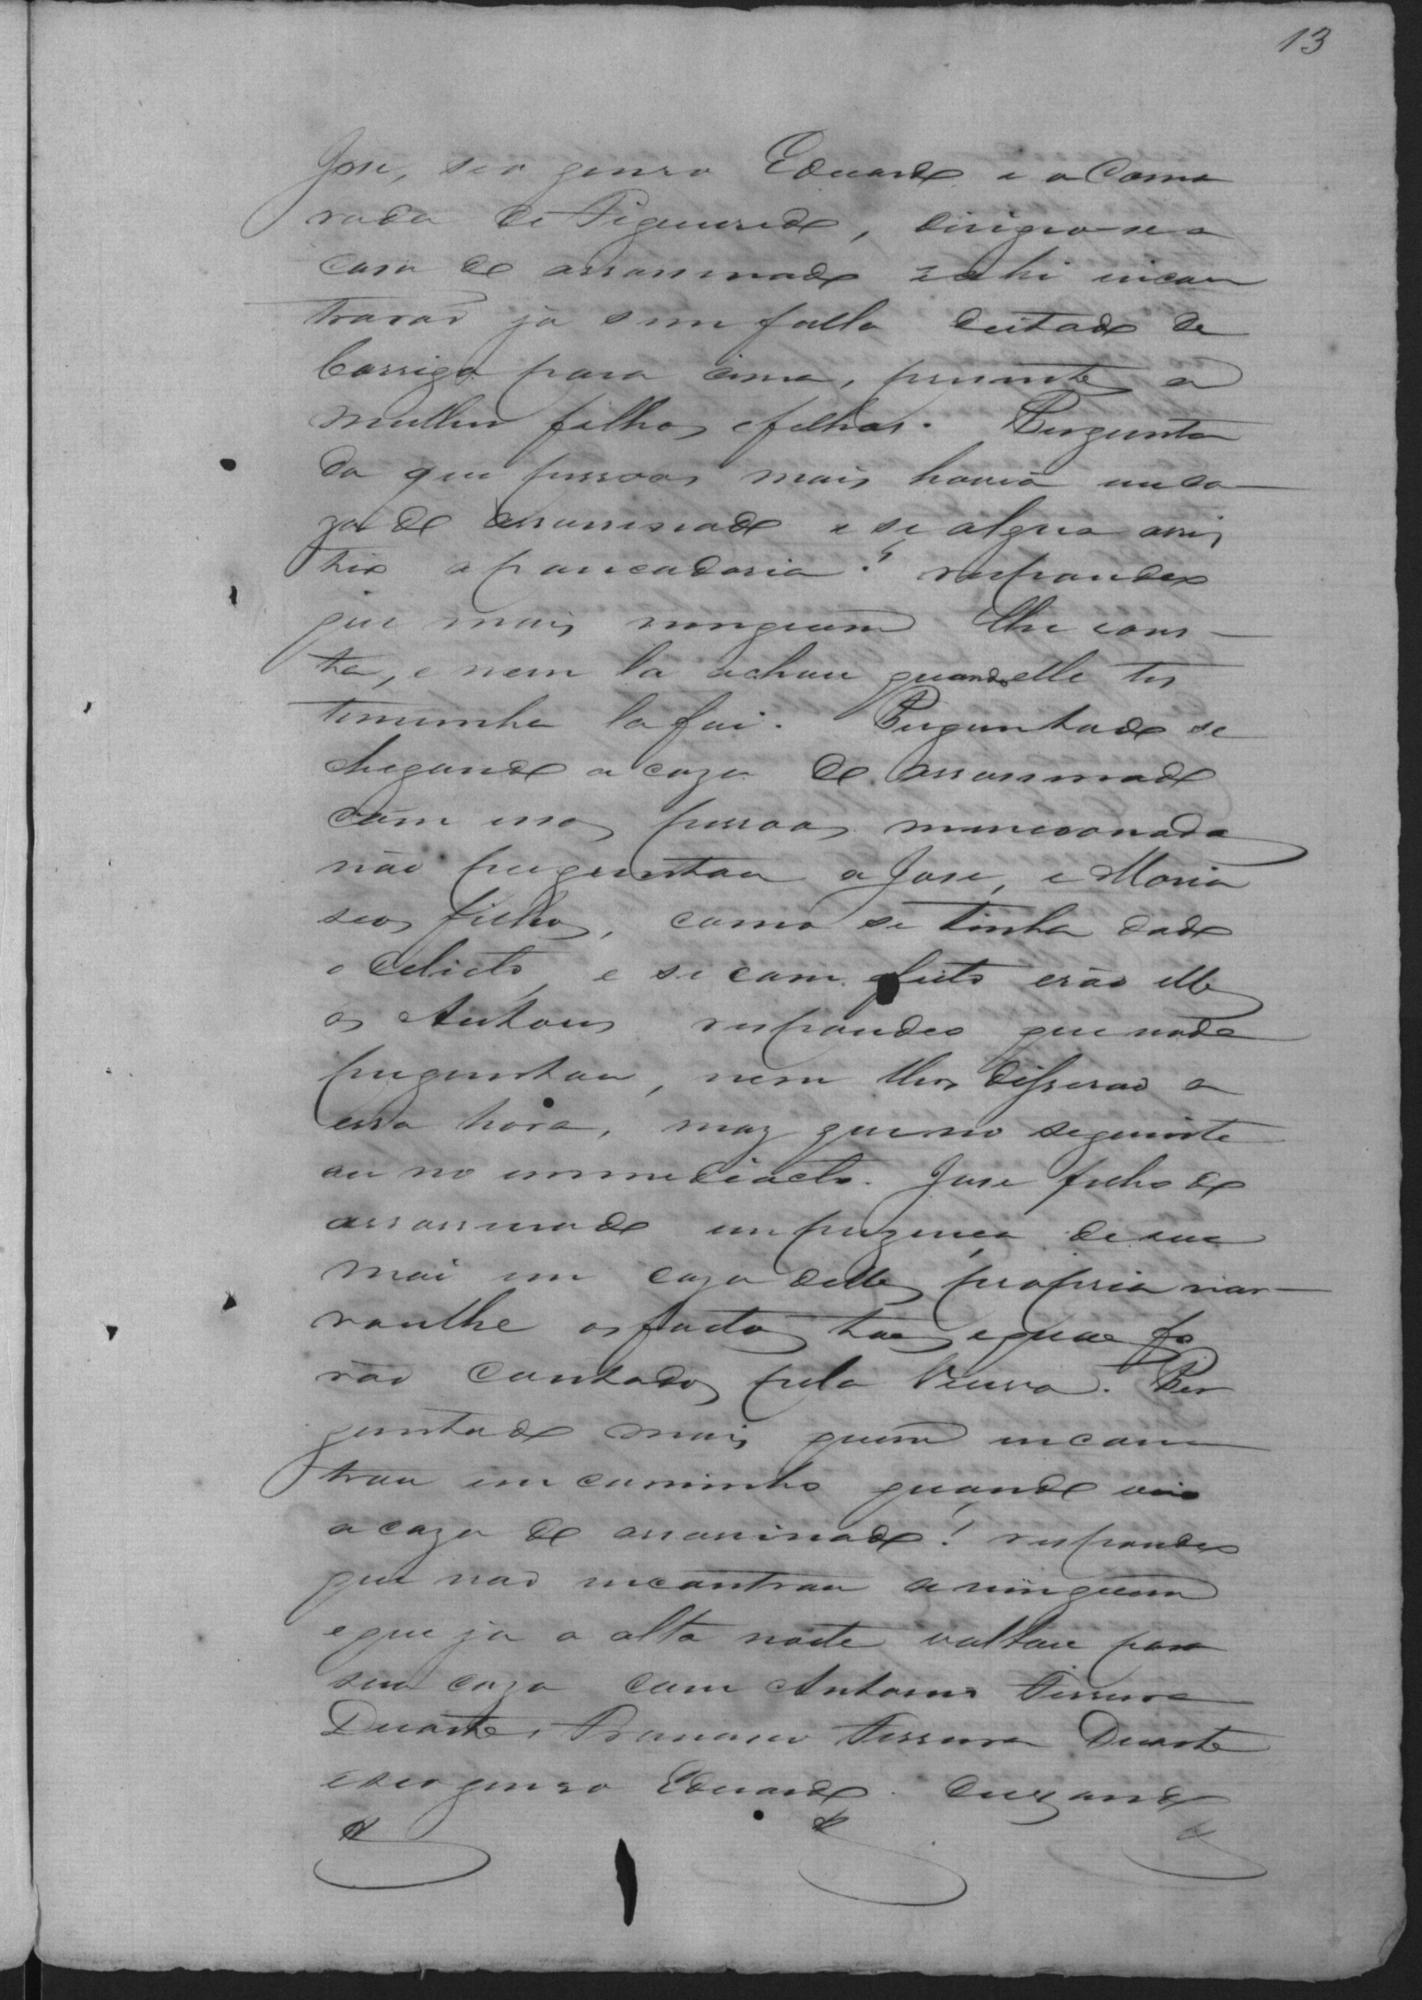 13
José, seo genro Eduardo e o Cama
rada de Figueiredo, dirigio-se a
casa do assassinado e ahi incon
trarão ja sem falla deitado de
barriga para cima, prezente a
mulher filhos e filhas. Pergunta
do que pessoas mais havia em ca
za do assassinado e se algua assis
tio a pancadaria? respondeo
que mais ninguem lhe cons-
ta, e nem la achou quando elle tes
timunha la foi. Perguntado se
chegando a caza do assassinado
com essas pessoas mencionadas
não perguntou a José, e Maria
seos filhos, como se tinha dado
o delicto, e se com effeito erão elles
os Autores respondeo que nada
preguntou, nem lhes disserão a
essa hora, maz que no seguinte
ou no immediacto. José filho do
assassinado em prezença de sua
mai em caza delles propria nar-
rou lhe os factos taes e quaes fo
rão contados pela Viuva. Per
guntado mais quem incon
trou em caminho quando veio
a caza do assassinado? respondeo
que não incontrou a ninguem
e que ja a alta noite voltou para
sua caza com Antonio Ferreira
Duarte, Francisco Ferreira Duarte
e seo genro Eduardo. Dizendo